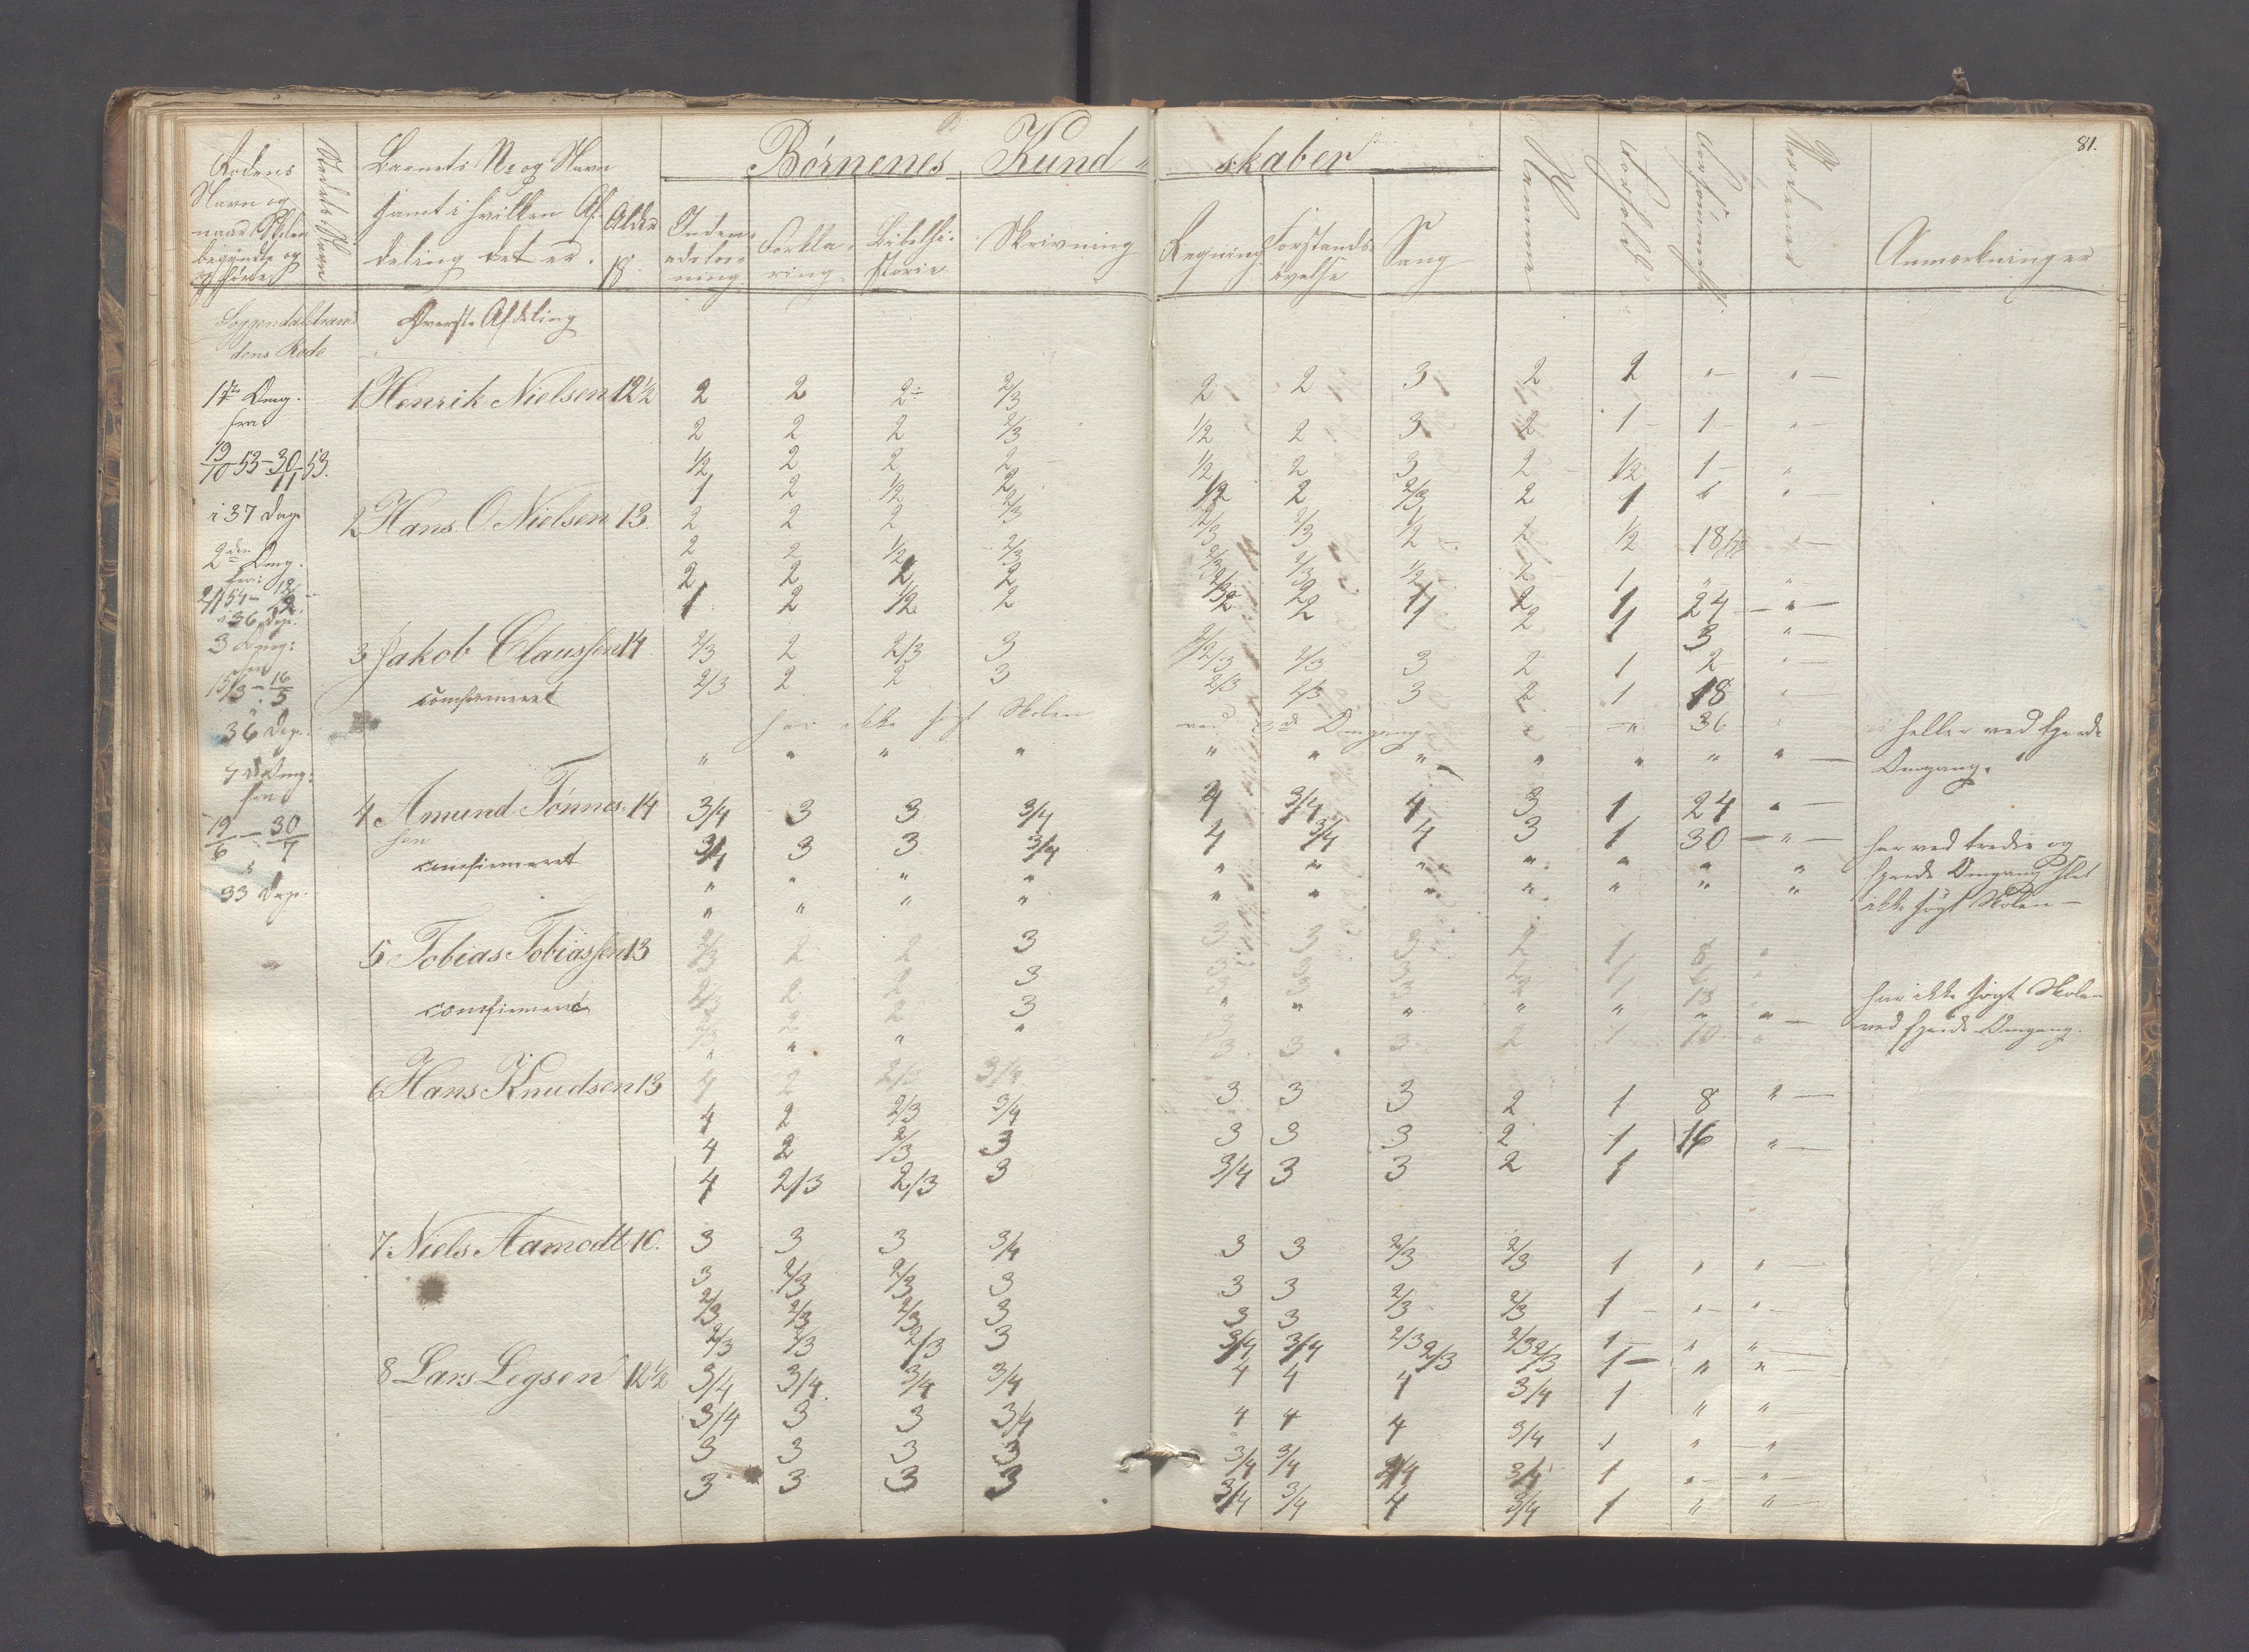 Rodens
Navn og
naar Skolen
begyndte og
hörte
Stedets Navn
Barnets No og Navn
samt i hvilken Af-
deling det er.
Alder
18
Börnenes Kund-
skaber
Inden-
adslæs-
ning
Forkla-
ring
Bibelhi-
storie
Skrivning
Regning
Forstands-
övelse
Sang
Nemme
Forhold
Forsömmelse
Anmærkninger
81.
Soggendalstran-
dens Rode
Øverste Afdeling
1ste Omg.
fra
19/10 53 - 30/11 53.
i 37 Dage
2den Omg.
i 36 Dage.
3 Omg:
fra
15/3 - 16/5
36 Dage.
4de Omg:
fra
19/6 - 30/7
33 Dage.
1 Henrik Nielsen 12½ 2 2 2 2/3 2 2 3 2 2 " "
2 2 2 2/3 1/2 2 3 2 1 1 "
1/2 2 2 2 1/2 2 3 2 1/2 1 "
1 2 1/2 2 1/2 2 2/3 2 1 "
2 Hans O Nielsen 13. 2 2 2 2/3 2/3 2/3 1/2 2 1/2 18 "
2 2 1/2 2/3 2/3 2/3 1/2 2 1 " "
2 2 2 2 2 1 2 1 24 "
1 2 1/2 2 2 2 1 2 1 3 "
3 Jakob Claussen 14 2/3 2 2/3 3 2/3 2/3 3 2 1 2 "
confirmeret 2/3 2 2 3 2/3 2/3 3 2 1 18 "
har ikke sögt Skolen ved 3de Omgang " 36 " heller ved fjerde
" " " " " " " " " " " Omgang.
4 Amund Tönnes- 14 3/4 3 3 3/4 4 3/4 4 3 1 24 "
sen
confirmeret 3/4 3 3 3/4 4 3/4 4 3 1 30 " har ved tredie og
" " " " " " " " " " " fjerde Omgang slet
" " " " " " " " " " " ikke sögt Skolen -
5 Tobias Tobiassen 13 2/3 2 2 3 3 3 3 2 1 8 "
2/3 2 2 3 3 3 3 2 1
confirmeret 2/3 2 2 3 " " " " " " " har ikke sögt Skolen
" " " " 3 3 3 2 1 10 " ved fjerde Omgang.
6 Hans Knudsen 13 4 2 2/3 3/4 3 3 3 2 1 8 "
4 2 2/3 3/4 3 3 3 2 1 16 "
4 2 2/3 3 3/4 3 3 2 1
4 2/3 2/3 3
7. Niels Aamodt 10. 3 3 3 3/4 3 3 2/3 2/3 1 " "
3 2/3 2/3 3 3 3 2/3 2/3 1 " "
2/3 2/3 2/3 3 3 3 2/3 2/3 1 " "
2/3 2/3 2/3 3 3/4 3/4 2/3 2/3 1 " "
8 Lars Legsen 12½ 3/4 3/4 3/4 3/4 4 4 4 3/4 1 " "
3/4 3 3 3/4 4 4 4 3/4 1 " "
3 3 3 3 3/4 3/4 3/4 3/4 1 " "
3 3 3 3 3/4 3/4 4 3/4 1 " "